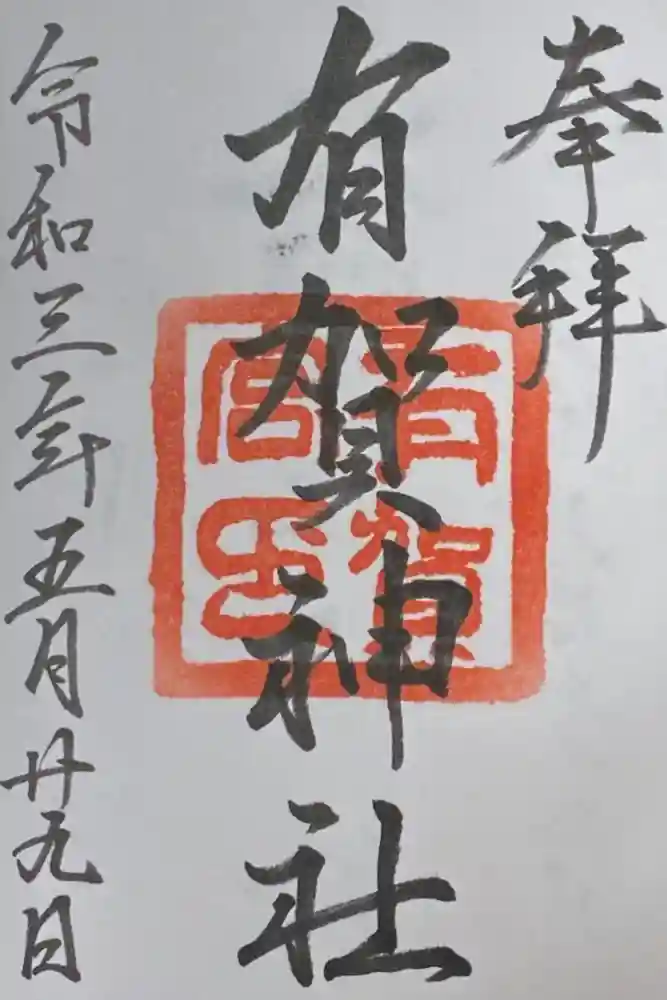 奉拝
有賀神社
有賀宮印
令和三年五月廿九日